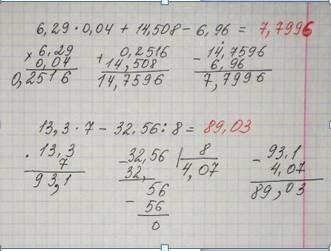 6,29 · 0,04 + 14,508 - 6,96 = 7,7996
× 6.29 + 0,2516 - 14,7596
0,04 14,508 6,96
0,2516 14,7596 7,7996
13,3 · 7 - 32,56 : 8 = 89,03
. 13,3 - 32,56 | 8 - 93,1
7 32, 4,07 4,07
93,1 56 89,03
- 56
0